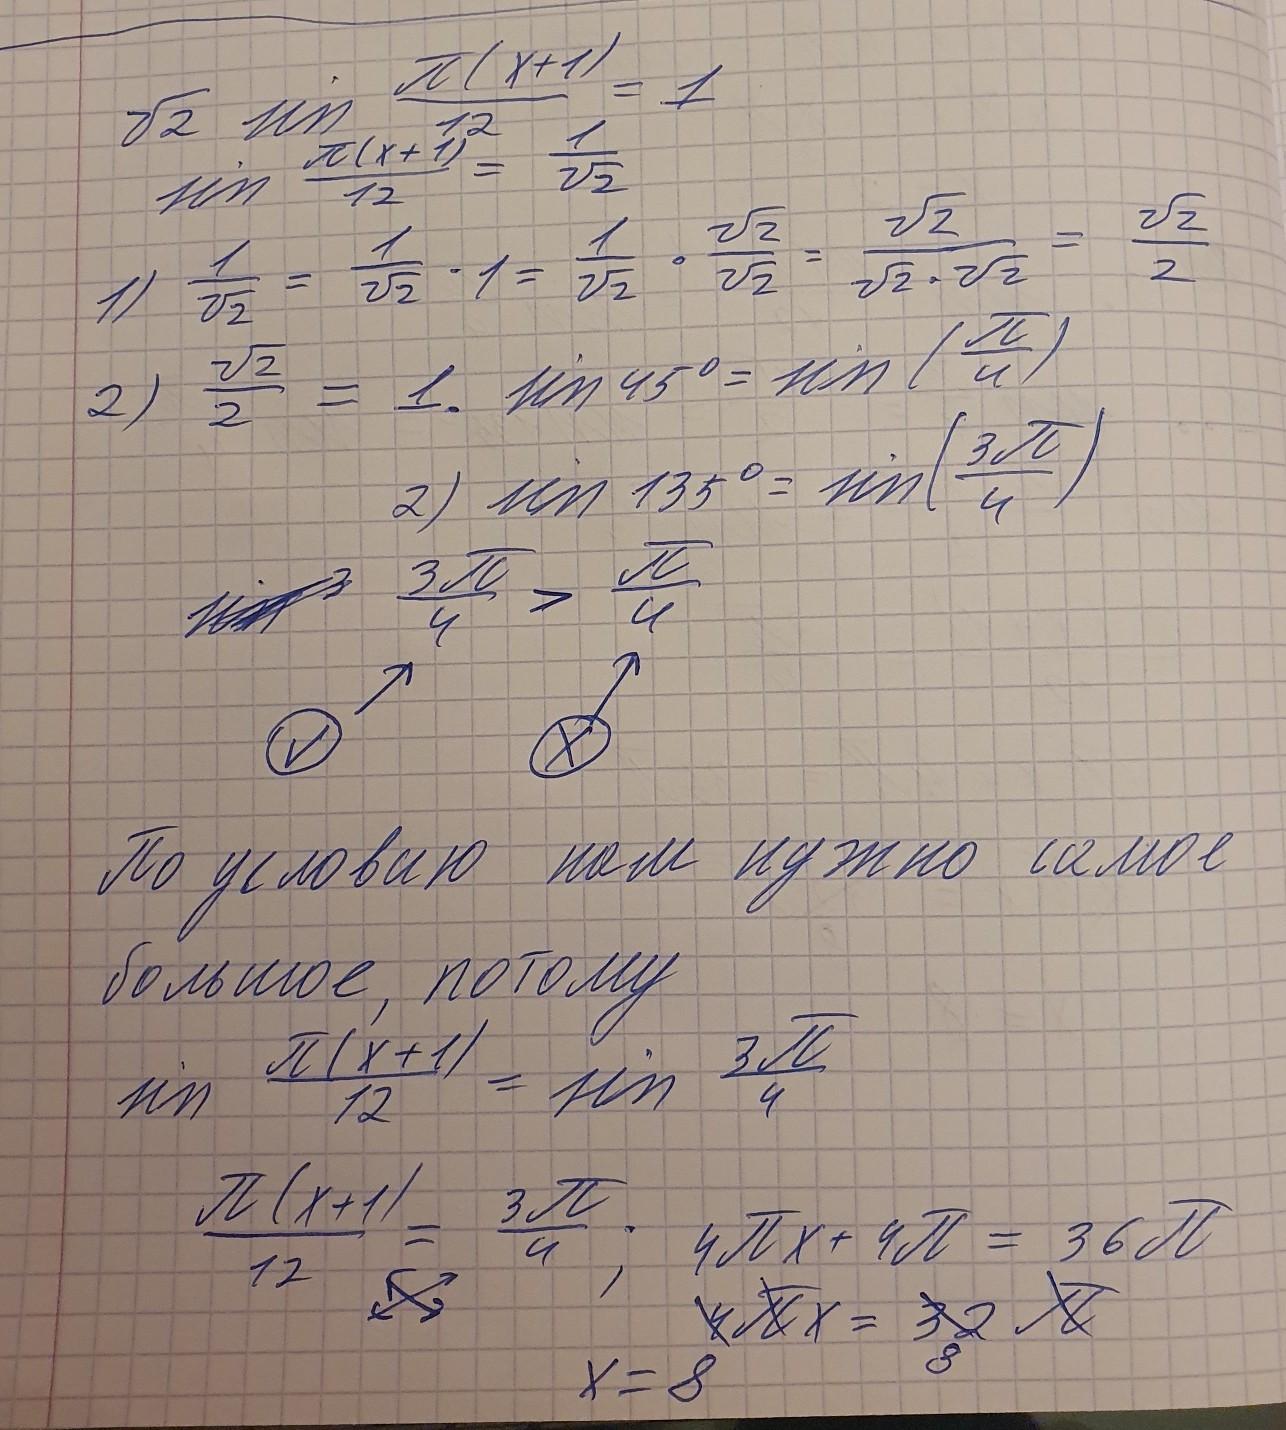 √2 sin π(x+1)/12 = 1
sin π(x+1)/12 = 1/√2
1) 1/√2 = 1/√2 · 1 = 1/√2 · √2/√2 = √2/(√2·√2) = √2/2
2) √2/2 = 1. sin 45° = sin (π/4)
2) sin 135° = sin (3π/4)
3π/4 > π/4
V X
По условию нам нужно самое
большое, потому
sin π(x+1)/12 = sin 3π/4
π(x+1)/12 = 3π/4 ; 4πx + 4π = 36π
4πx = 32π
8
x = 8